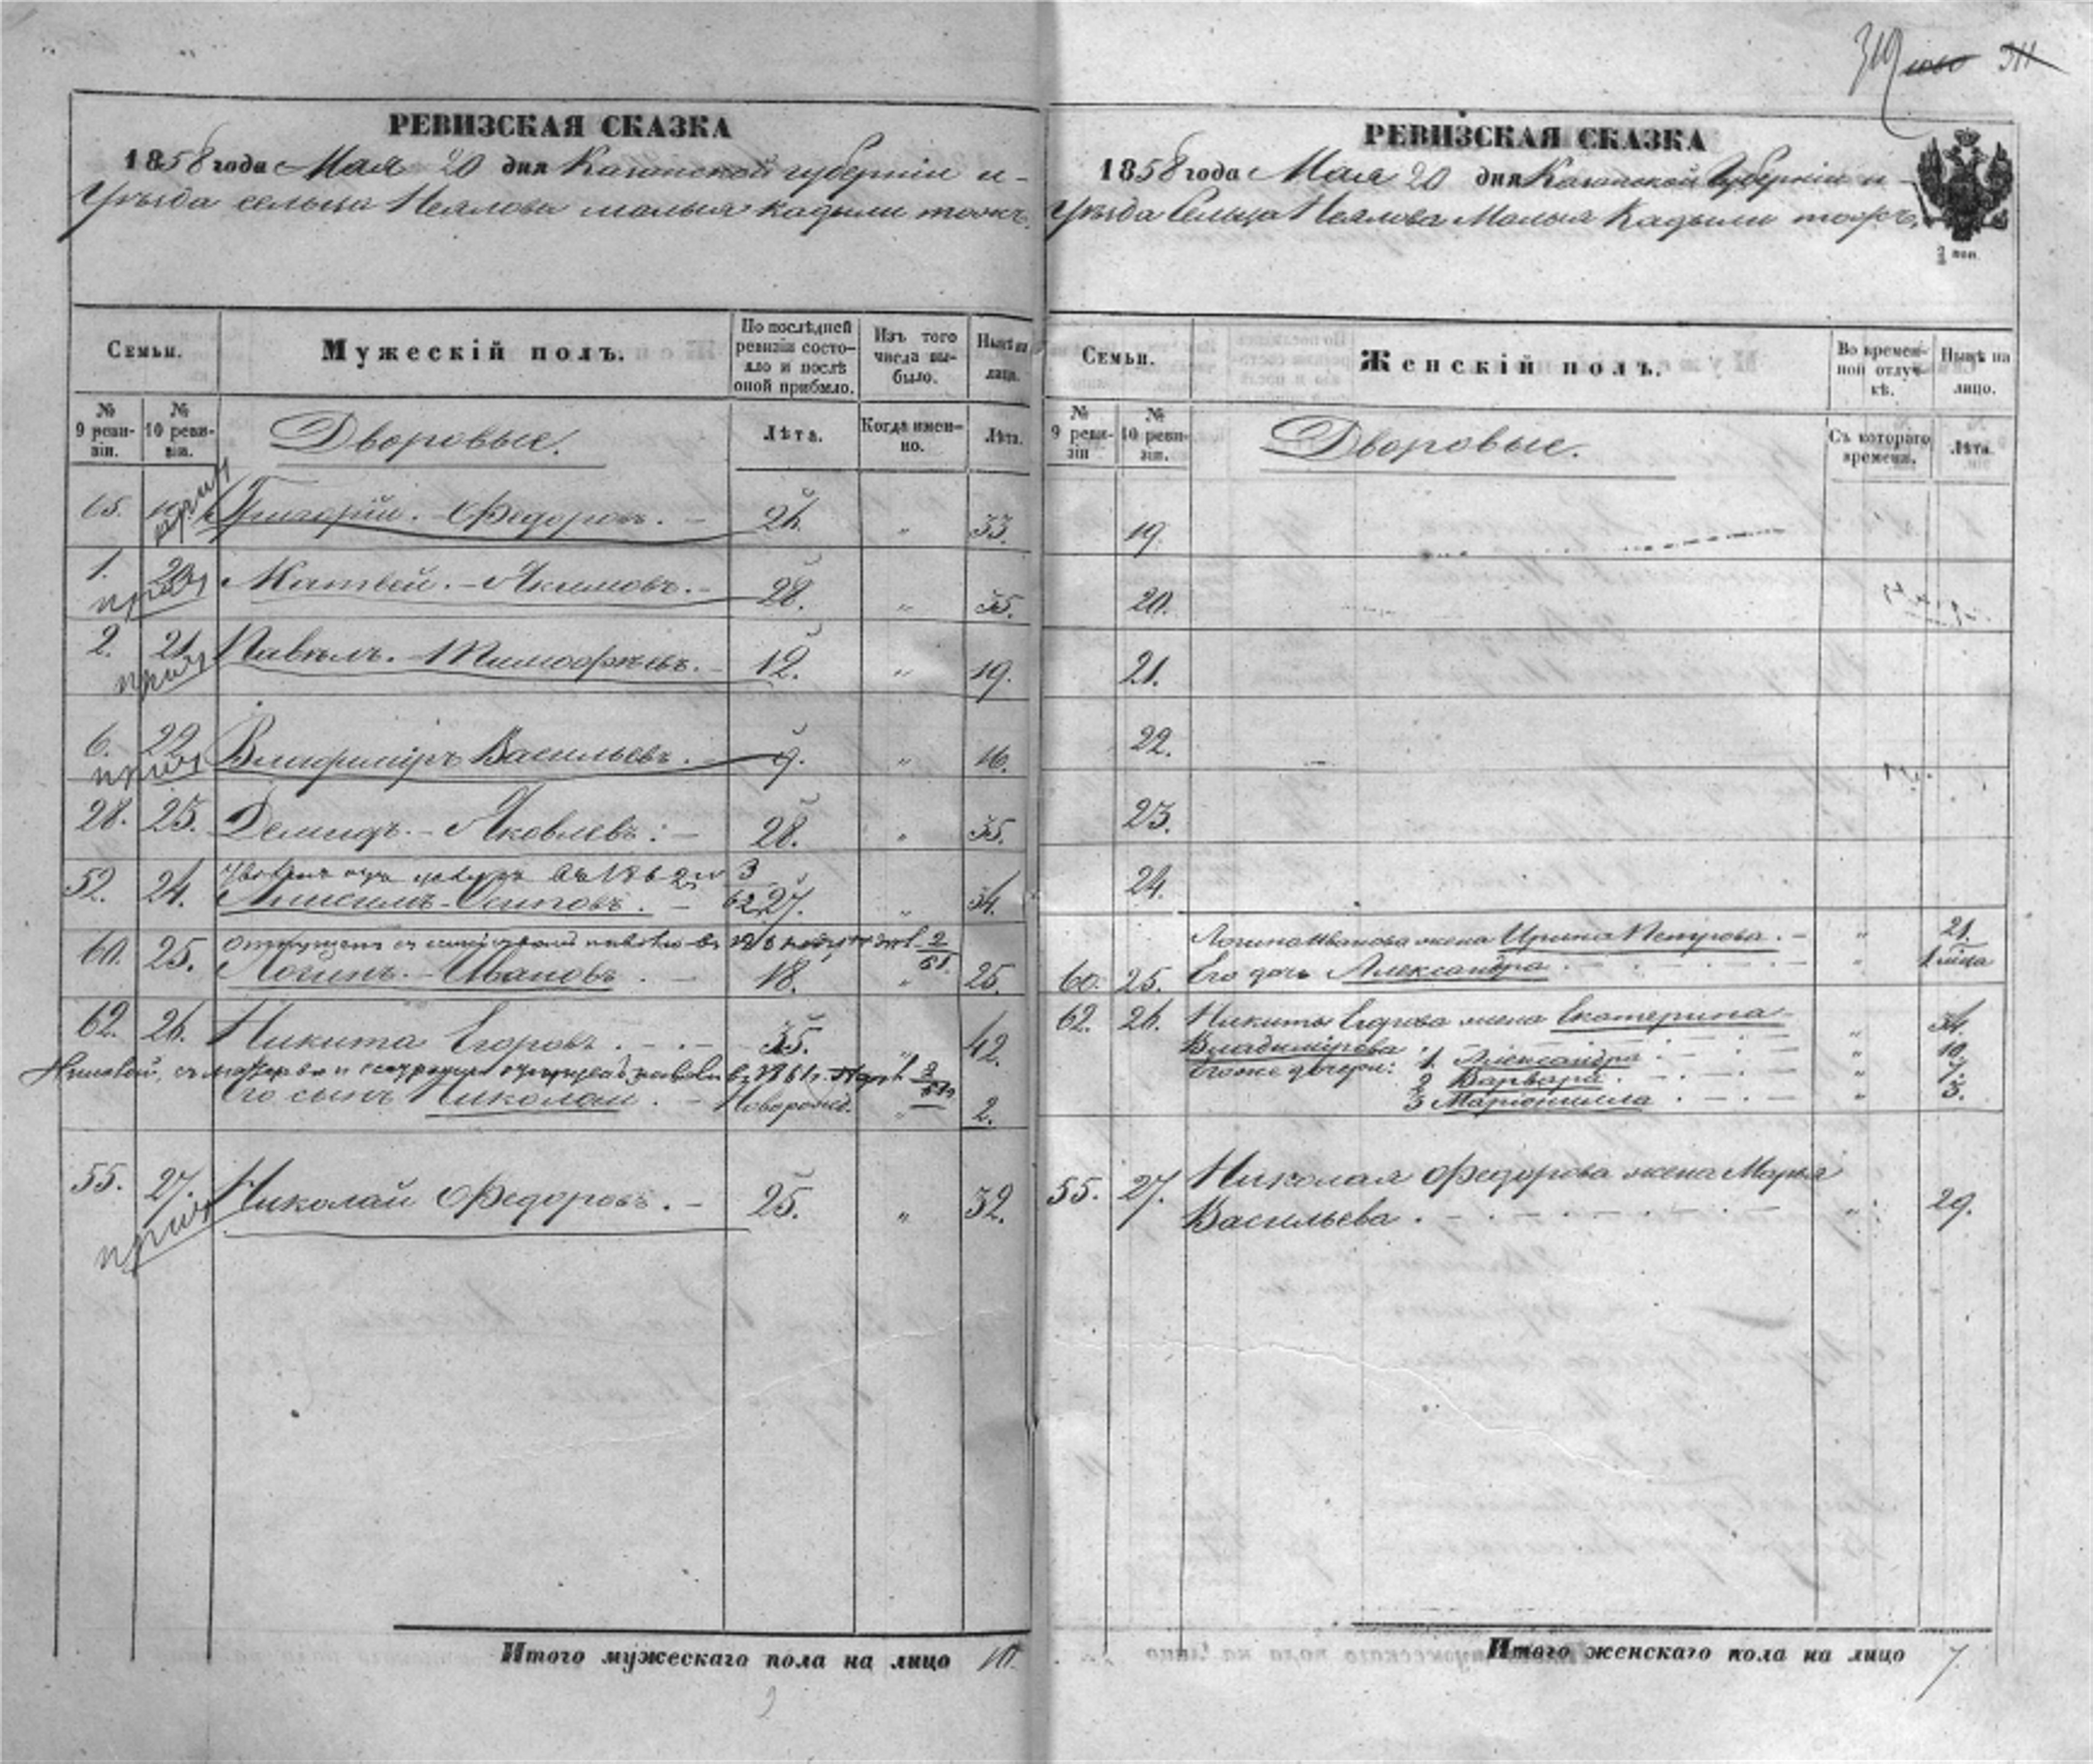 319 1060 311
РЕВИЗСКАЯ СКАЗКА
1858 года Мая 20 дня Казанской губерніи и
Уѣзда сельца Неялова малыя Кадыли тожъ.
Семьи.
Мужескій полъ.
По послѣдней ревизіи состояло и послѣ оной прибыло.
Изъ того числа выбыло.
Нынѣ на лицо.
№ 9 ревизіи.
№ 10 ревизіи.
Дворовые.
Лѣта.
Когда именно.
Лѣта.
15. 19. Григорій Федоровъ. 26. " 33.
1. 20. Матвей Акимовъ. 28. " 35.
2. 21. Павелъ Тимофѣевъ. 12. " 19.
6. 22. Владиміръ Васильевъ. 9. " 16.
28. 23. Демидъ Яковлевъ. 28. " 35.
3
52. 24. Анисимъ Осиповъ. 27. " 34.
60. 25. Логинъ Ивановъ. 18. " 25.
62. 26. Никита Егоровъ. 35. " 42.
Его сынъ Николай. Новорожд. " 2.
55. 27. Николай Федоровъ. 25. " 32.
Итого мужескаго пола на лицо 10.
РЕВИЗСКАЯ СКАЗКА
1858 года Мая 20 дня Казанской Губерніи и
Уѣзда Сельца Неялова Малыя Кадыли тожъ.
Семьи.
Женскій полъ.
Во временной отлучкѣ.
Нынѣ на лицо.
№ 9 ревизіи
№ 10 ревизіи.
Дворовые.
Съ котораго времени.
Лѣта.
19.
20.
21.
22.
23.
24.
Логина Иванова жена Ирина Петрова. " 21.
60. 25. Его дочь Александра " 1 мѣсяца
62. 26. Никиты Егорова жена Екатерина
Владимірова " 34.
Его же дочери: 1. Александра " 10.
2 Варвара " 7.
3 Маріонилла " 3.
55. 27. Николая Федорова жена Марья
Васильева " 29.
Итого женскаго пола на лицо 7